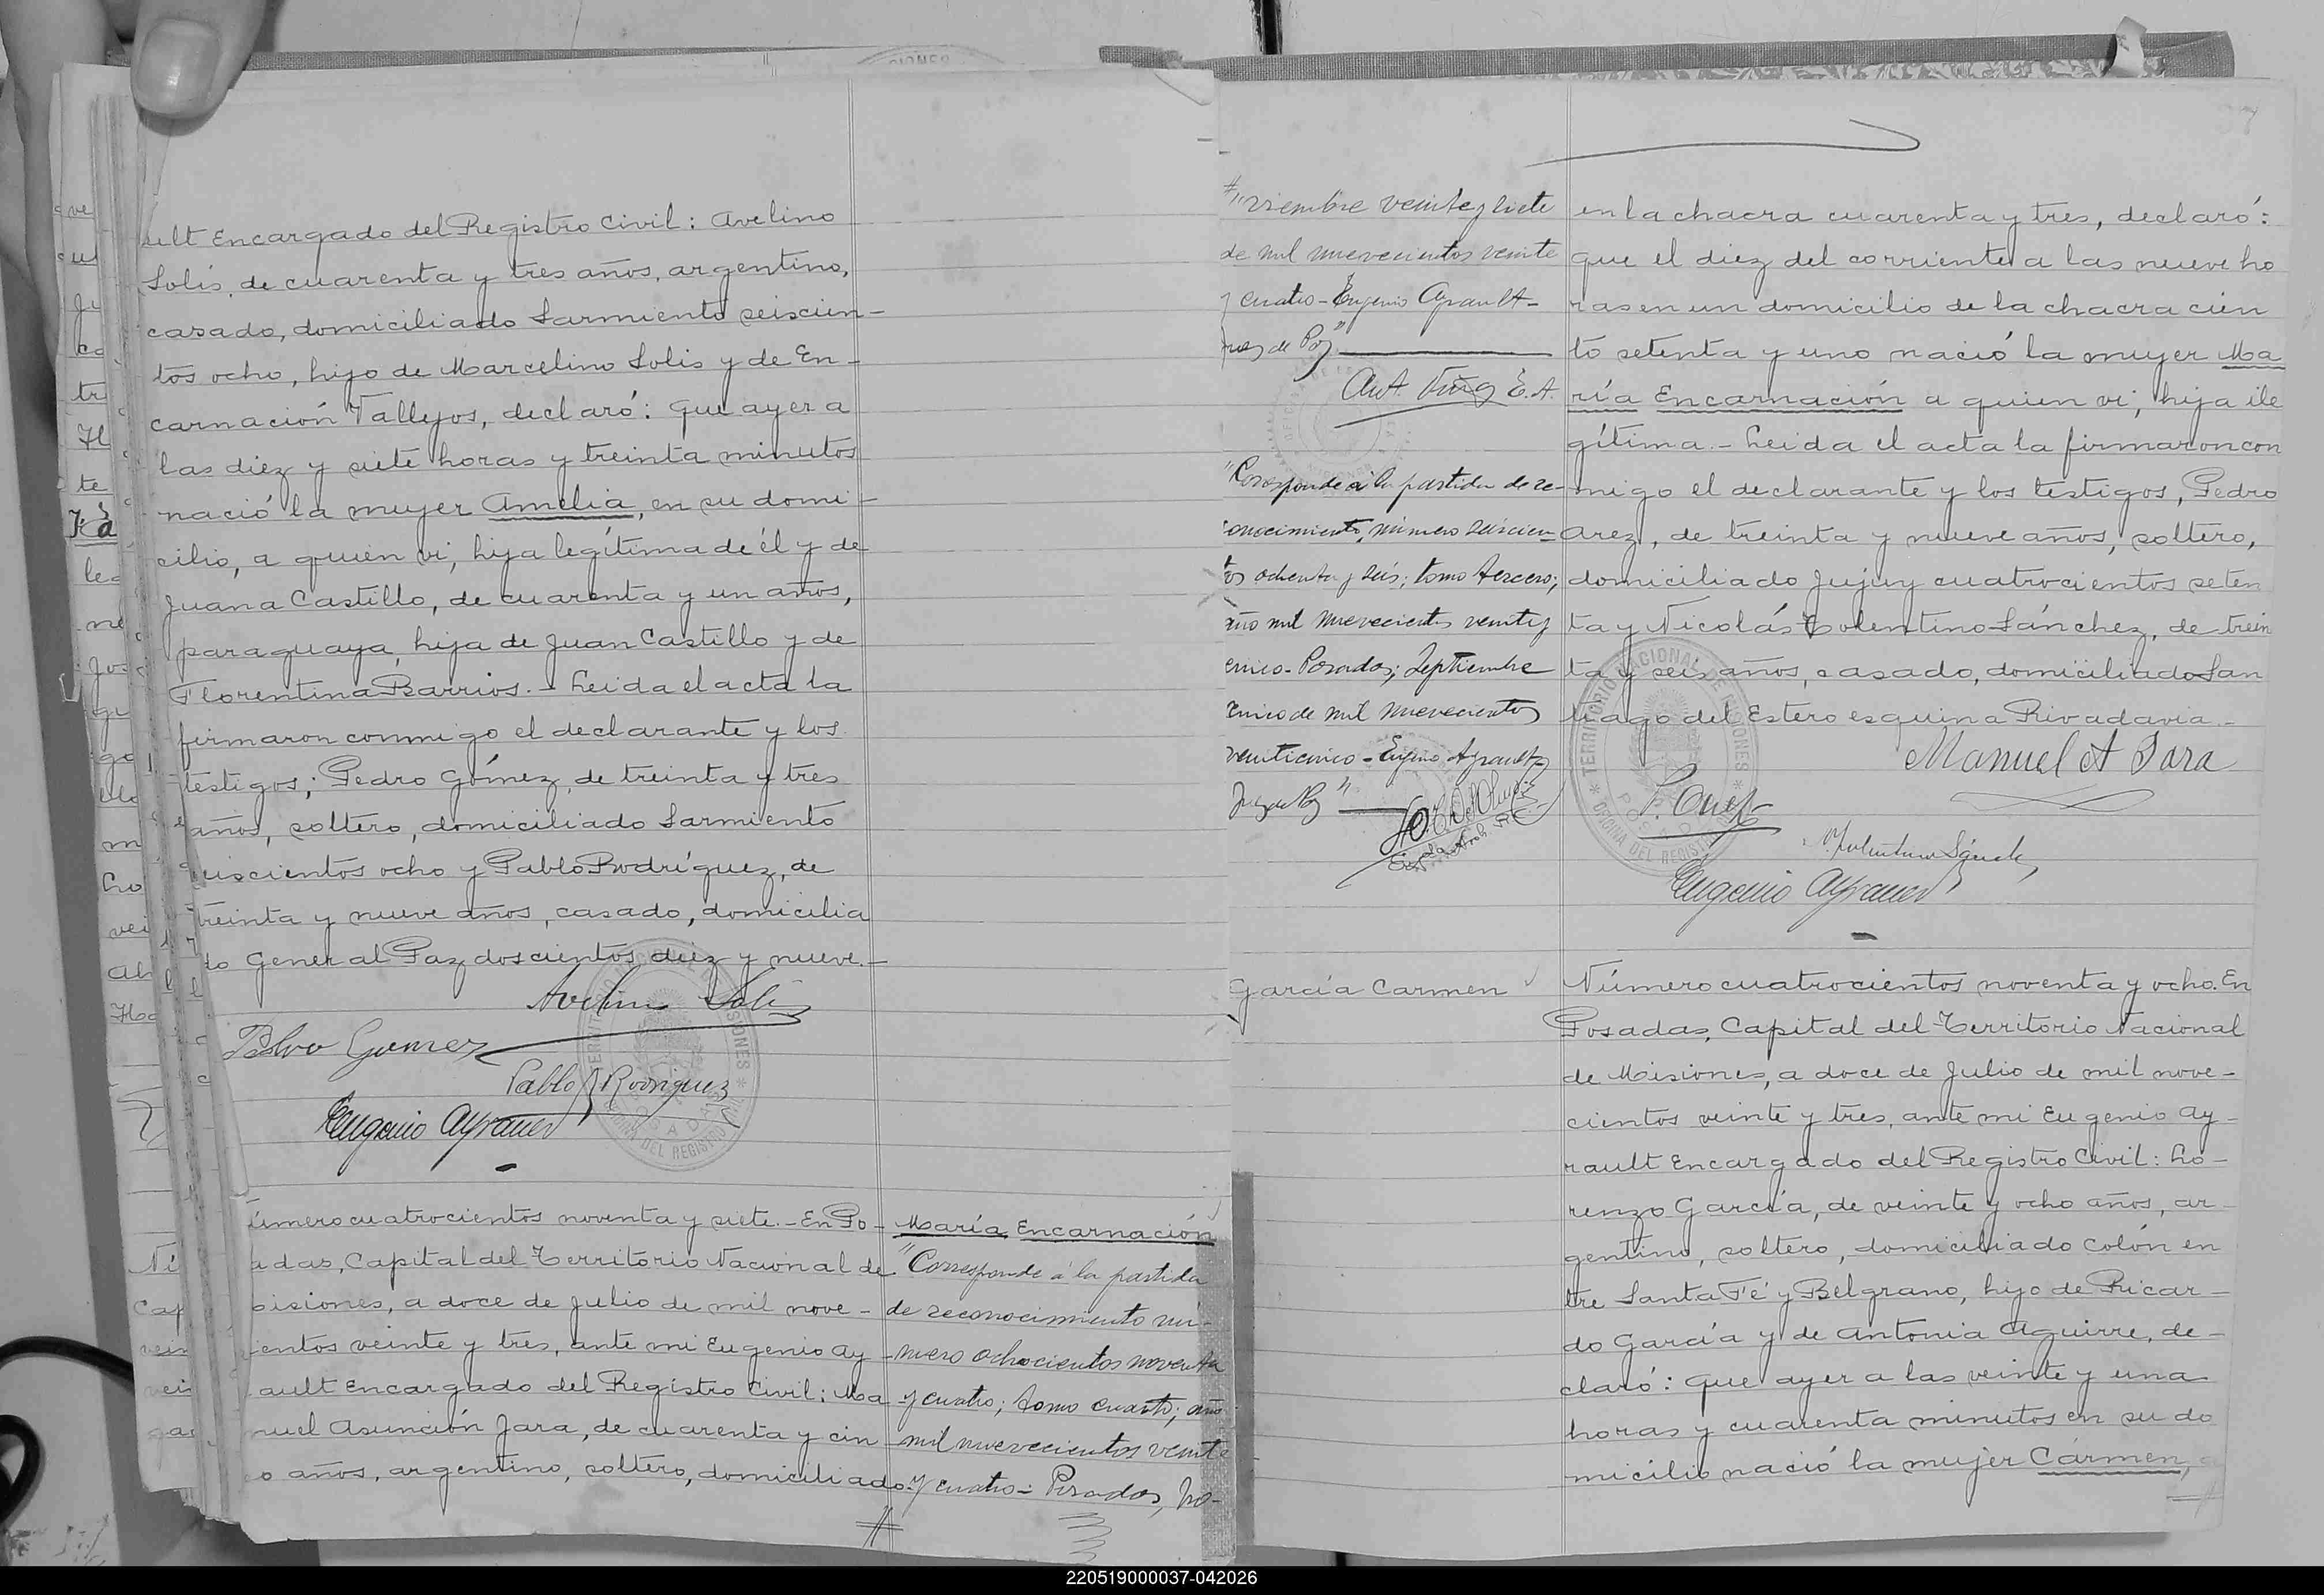 ult Encargado del Registro Civil: Avelino
Solis, de cuarenta y tres años, argentino,
casado, domiciliado Sarmiento seiscien-
tos ocho, hijo de Marcelino Solis y de En-
carnación Vallejos, declaró: que ayer a
las diez y siete horas y treinta minutos
nació la mujer Amelia, en su domi-
cilio, a quien vi, hija legítima de él y de
Juana Castillo, de cuarenta y un años,
paraguaya, hija de Juan Castillo y de
Florentina Barrios.- Leida el acta la
firmaron conmigo el declarante y los
testigos; Pedro Gómez, de treinta y tres
años, soltero, domiciliado Sarmiento
seiscientos ocho y Pablo Rodríguez, de
treinta y nueve años, casado, domicilia
do General Paz doscientos diez y nueve.-
Avelino Solis
Pedro Gomez
Pablo Rodriguez
Eugenio Ayrault
úmero cuatrocientos noventa y siete.- En Po-
adas, Capital del Territorio Nacional de
isiones, a doce de Julio de mil nove-
ientos veinte y tres, ante mi Eugenio Ay-
ault Encargado del Registro Civil: Ma
nuel Asunción Jara, de cuarenta y cin
o años, argentino, soltero, domiciliado
María Encarnación
"Corresponde á la partida
de reconocimiento nú-
mero ochocientos noventa
y cuatro; tomo cuarto; año
mil nuevecientos veinte
y cuatro- Posadas, No-
#
# "viembre veinte y siete
de mil nuevecientos veinte
y cuatro- Eugenio Ayrault-
Juez de Paz"
"Corresponde á la partida de re-
conocimiento, número seiscien-
tos ochenta y seis; tomo tercero;
año mil nuevecientos veinte y
cinco- Posadas; Septiembre
cinco de mil nuevecientos
veinticinco- Eugenio Ayrault-
Juez de Paz"
en la chacra cuarenta y tres, declaró:
que el diez del corriente a las nueve ho
ras en un domicilio de la chacra cien
to setenta y uno nació la mujer Ma
ría Encarnación a quien vi, hija ile
gítima.- Leida el acta la firmaron con
migo el declarante y los testigos, Pedro
Arez, de treinta y nueve años, soltero,
domiciliado Jujuy cuatrocientos seten
ta y Nicolás Tolentino Sánchez, de trein
ta y seis años, casado, domiciliado San
tiago del Estero esquina Rivadavia.-
Manuel A Jara
Eugenio Ayrault
García Carmen
Número cuatrocientos noventa y ocho. En
Posadas, Capital del Territorio Nacional
de Misiones, a doce de Julio de mil nove-
cientos veinte y tres, ante mi Eugenio Ay-
rault Encargado del Registro Civil: Lo-
renzo García, de veinte y ocho años, ar-
gentino, soltero, domiciliado Colón en
tre Santa Fé y Belgrano, hijo de Ricar-
do García y de Antonia Aguirre, de-
claró: que ayer a las veinte y una
horas y cuarenta minutos en su do
micilio nació la mujer Cármen,
220519000037-042026